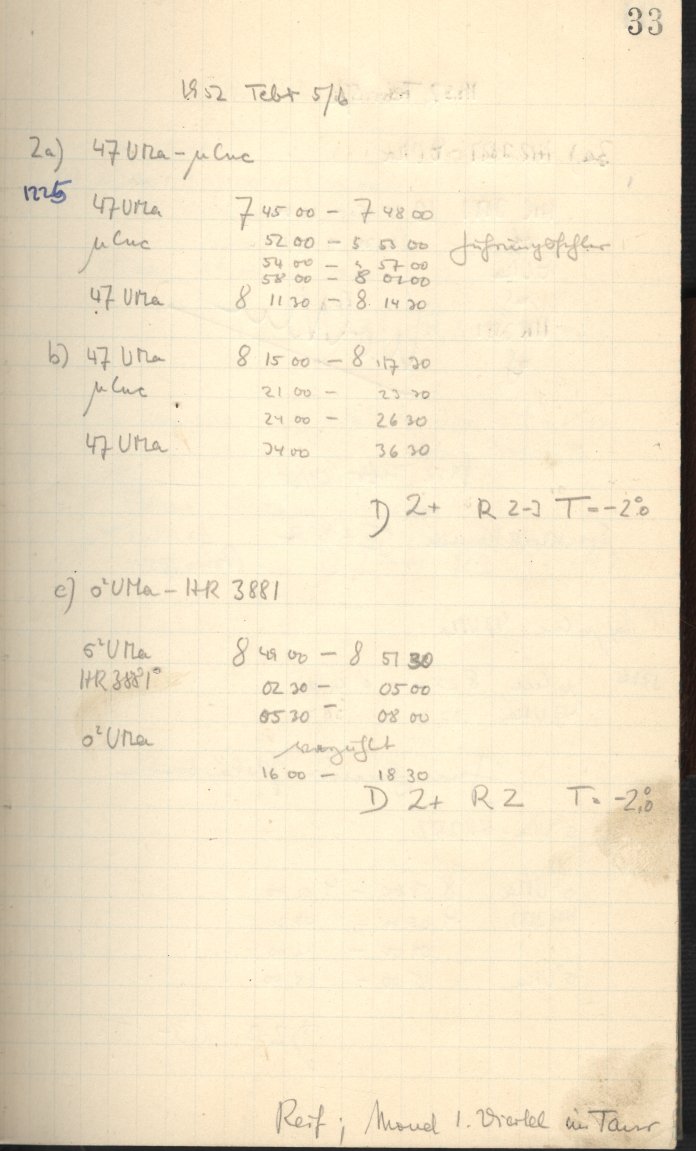 33
1952 Febr 5/6
2a) 47 UMa – μ Cnc
1225
47 UMa 7 45 00 – 7 48 00
μ Cnc 52 00 – 5 53 00 Führungsfehler
54 00 – 57 00
58 00 – 8 01 00
47 UMa 8 11 30 – 8 14 30
b) 47 UMa 8 15 00 – 8 17 30
μ Cnc 21 00 – 23 30
24 00 – 26 30
47 UMa 34 00 36 30
D 2+ R 2-3 T = -2°.0
c) o²UMa – HR 3881
o²UMa 8 49 00 – 8 51 30
HR 3881 02 30 – 05 00
05 30 – 08 00
o²UMa
16 00 – 18 30
D 2+ R 2 T = -2°.0
Reif; Mond 1. Viertel im Taur